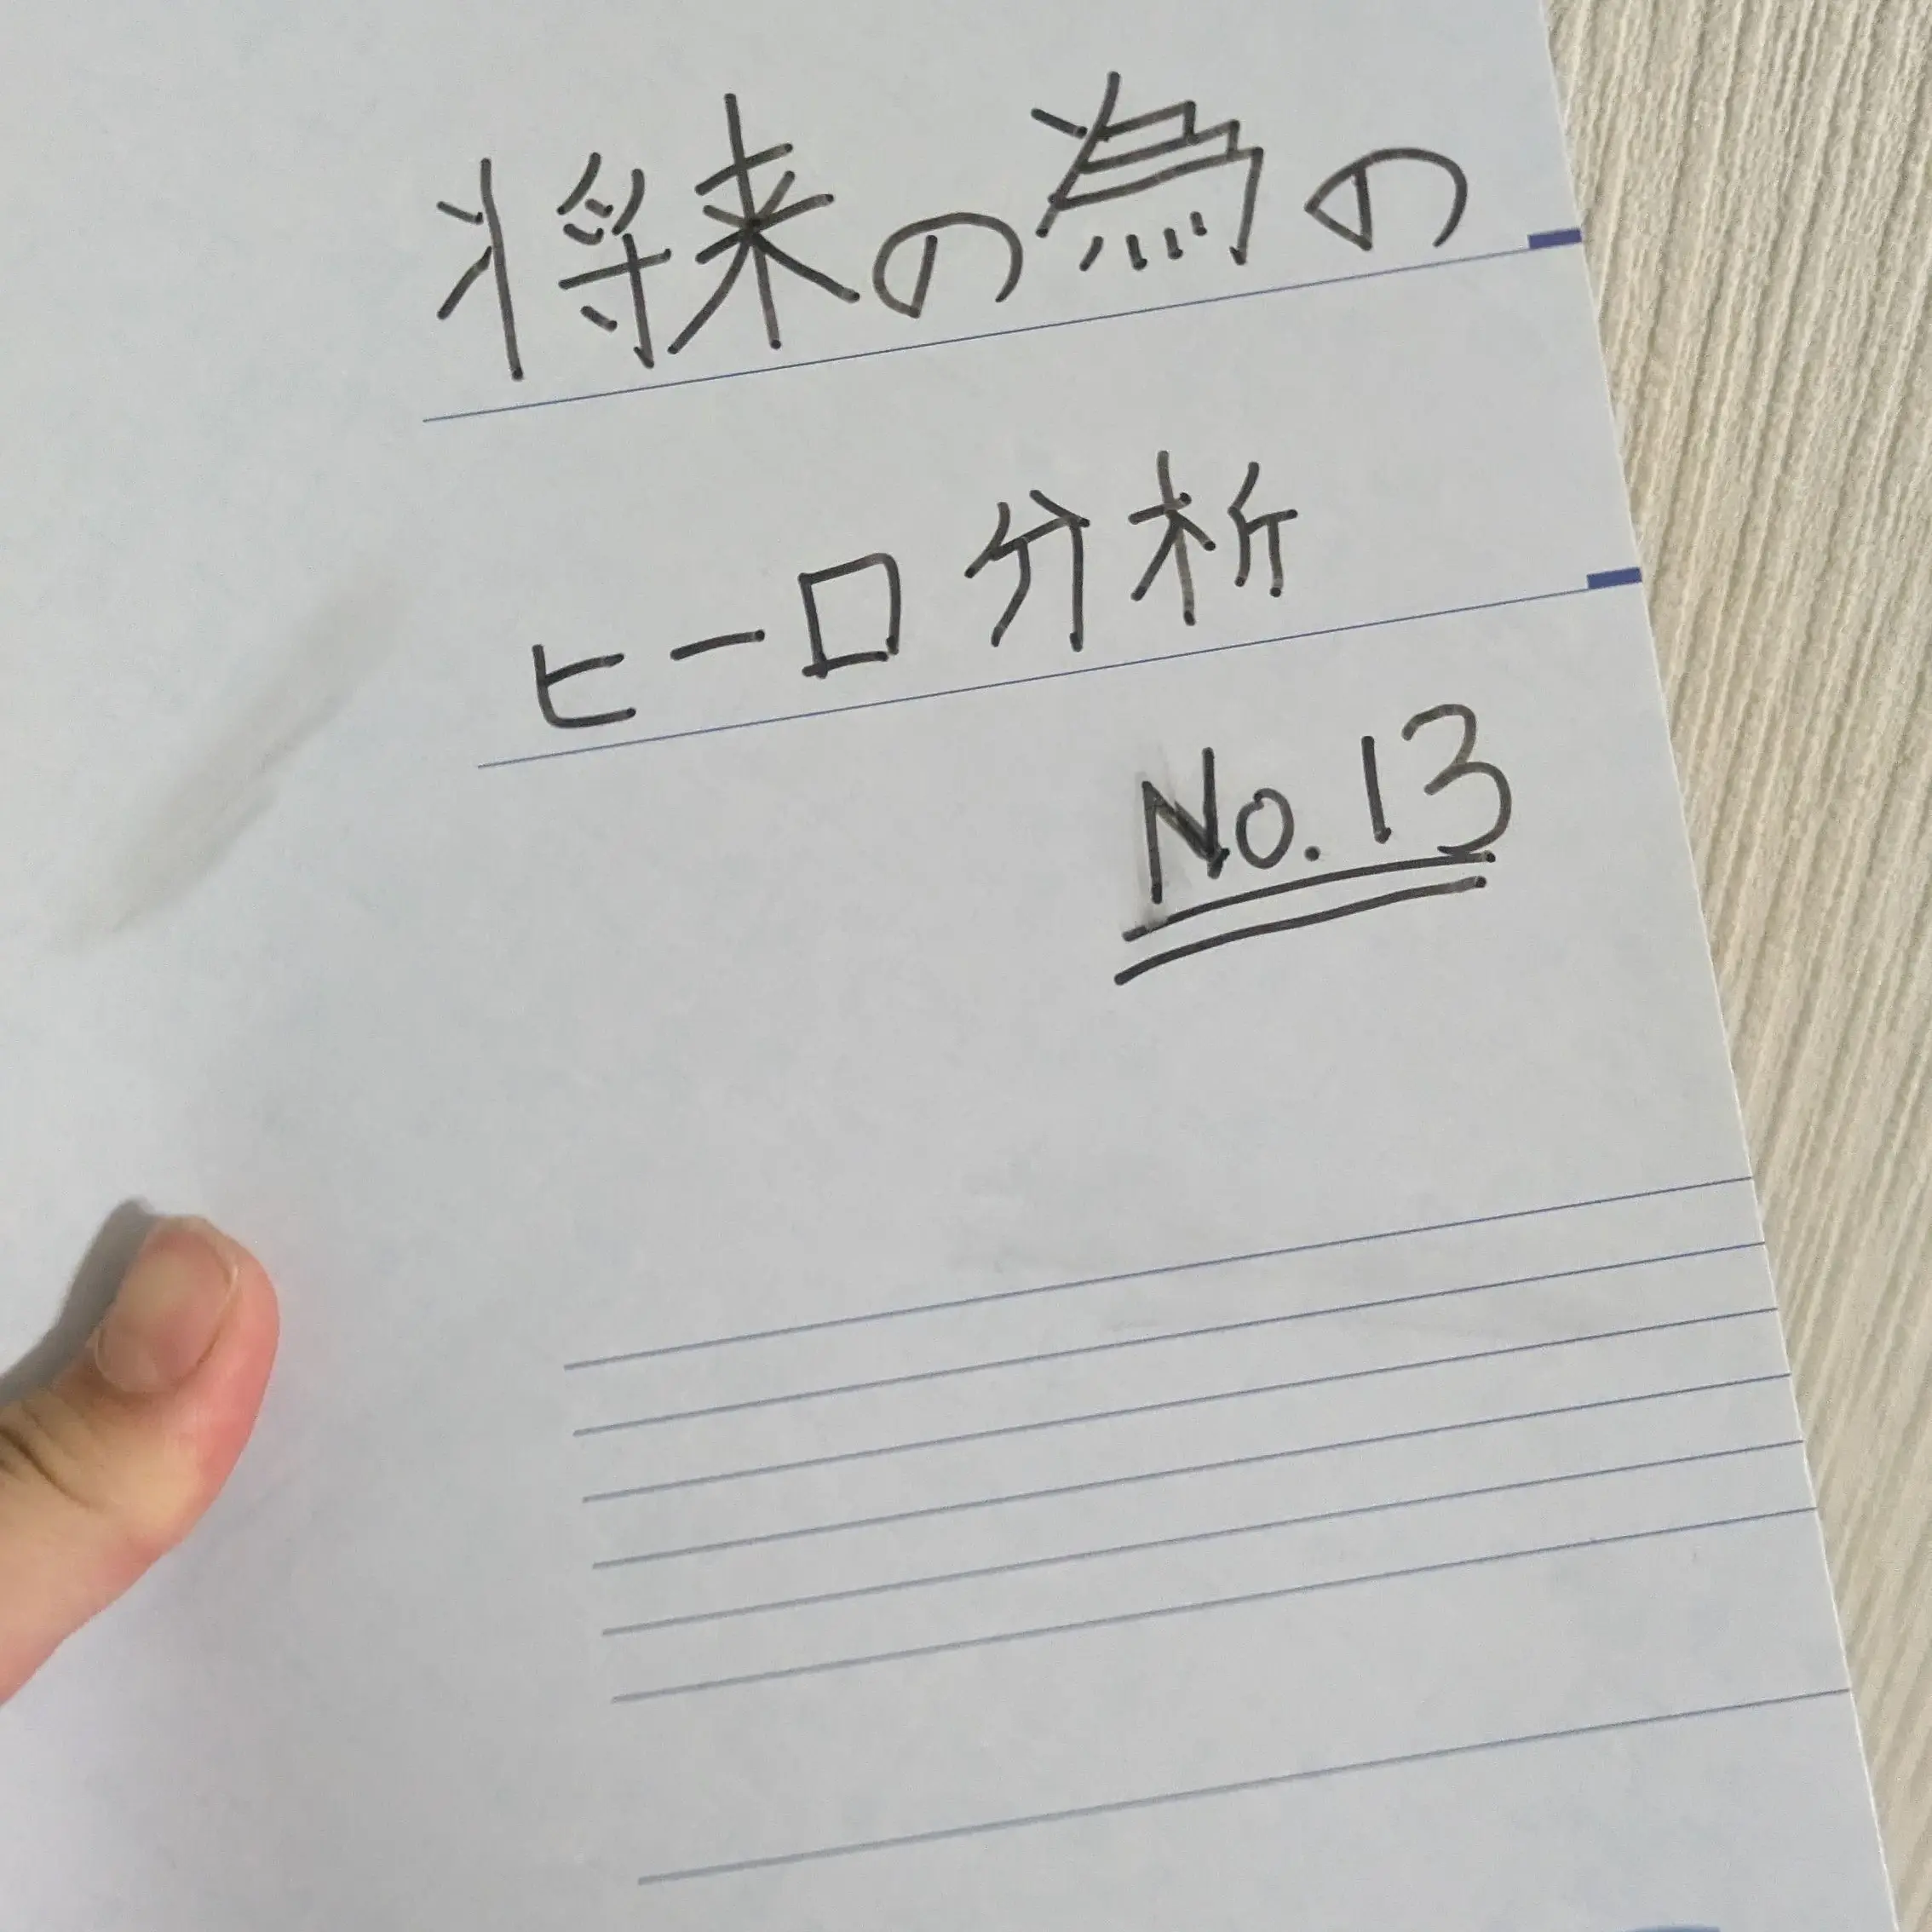 将来の為の
ヒーロ分析
No.13